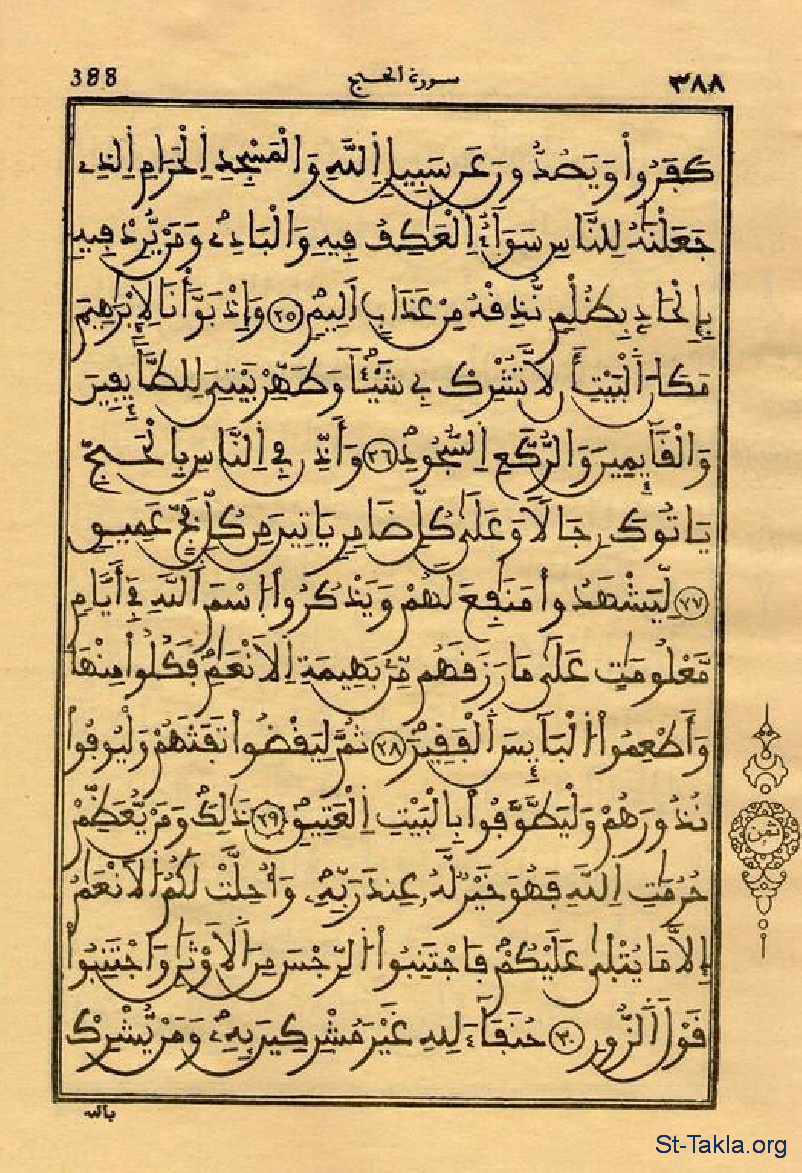 388 سورة الحج ٣٨٨
كَفَرُواْ وَيَصُدُّونَ عَن سَبِيلِ اِ۬للَّهِ وَالْمَسْجِدِ اِ۬لْحَرَامِ اِ۬لذِے
جَعَلْنَٰهُ لِلنَّاسِ سَوَآءٌ اِ۬لْعَٰكِفُ فِيهِ وَالْبَادِۦ وَمَنْ يُّرِدْ فِيهِ
بِإِلْحَادِۢ بِظُلْمٍ نُّذِقْهُ مِنْ عَذَابٍ اَلِيمٍ ٢٥ وَإِذْ بَوَّأْنَا لِإِبْرَٰهِيمَ
مَكَانَ اَ۬لْبَيْتِ أَن لَّا تُشْرِكْ بِے شَيْـٔاً وَطَهِّرْ بَيْتِيَ لِلطَّآئِفِينَ
وَالْقَآئِمِينَ وَالرُّكَّعِ اِ۬لسُّجُودِ ٢٦ وَأَذِّن فِے اِ۬لنَّاسِ بِالْحَجِّ
يَاتُوكَ رِجَالًا وَعَلَىٰ كُلِّ ضَامِرٍ يَاتِينَ مِن كُلِّ فَجٍّ عَمِيقٍ
٢٧ لِّيَشْهَدُواْ مَنَٰفِعَ لَهُمْ وَيَذْكُرُواْ اُ۪سْمَ اَ۬للَّهِ فِے أَيَّامٍ
مَّعْلُومَٰتٍ عَلَىٰ مَا رَزَقَهُم مِّنۢ بَهِيمَةِ اِ۬لَانْعَٰمِ فَكُلُواْ مِنْهَا
وَأَطْعِمُواْ اُ۬لْبَآئِسَ اَ۬لْفَقِيرَ ٢٨ ثُمَّ لْيَقْضُواْ تَفَثَهُمْ وَلْيُوفُواْ
نُذُورَهُمْ وَلْيَطَّوَّفُواْ بِالْبَيْتِ اِ۬لْعَتِيقِ ٢٩ ذَٰلِكَ وَمَنْ يُّعَظِّمْ
حُرُمَٰتِ اِ۬للَّهِ فَهُوَ خَيْرٌ لَّهُۥ عِندَ رَبِّهِۦ وَأُحِلَّتْ لَكُمُ اُ۬لَانْعَٰمُ
إِلَّا مَا يُتْلَىٰ عَلَيْكُمْ فَاجْتَنِبُواْ اُ۬لرِّجْسَ مِنَ اَ۬لَاوْثَٰنِ وَاجْتَنِبُواْ
قَوْلَ اَ۬لزُّورِ ٣٠ حُنَفَآءَ لِلهِ غَيْرَ مُشْرِكِينَ بِهِۦ وَمَنْ يُّشْرِكْ
ثمن
بالله
St-Takla.org